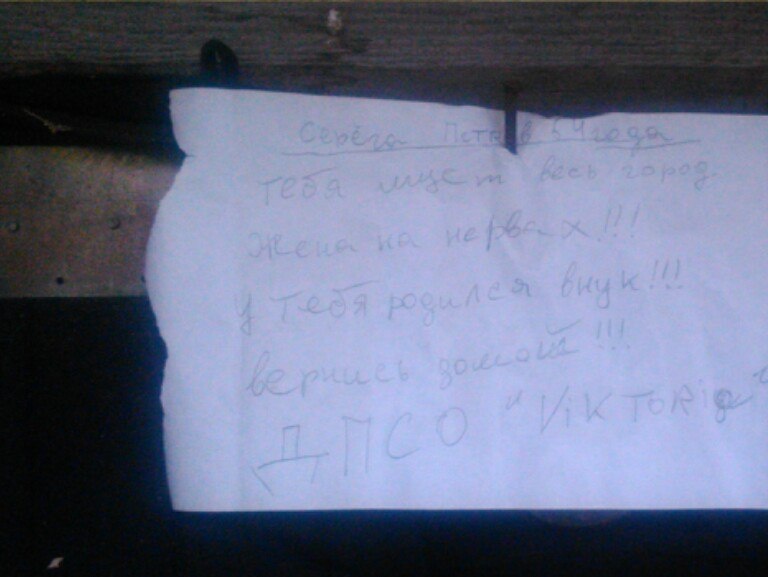 Серёга 54года
тебя ищет весь город.
Жена на нервах!!!
у тебя родился внук!!!
вернись домой!!!
ДПСО "ViKTORia"